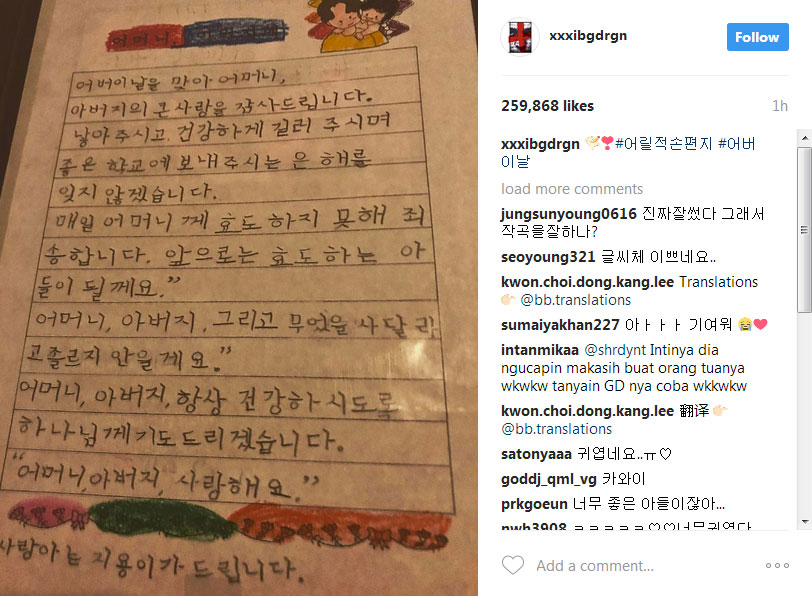 어머니,
어버이날을 맞아 어머니,
아버지의 큰 사랑을 감사드립니다.
낳아 주시고, 건강하게 길러 주시며
좋은 학교에 보내주시는 은 혜를
잊지 않겠습니다.
매일 어머니 께 효도 하지 못해 죄
송합니다. 앞으로는 효도하는 아
들이 될께요."
어머니, 아버지, 그리고 무엇을 사달라
고졸르지 안을게요."
어머니, 아버지, 항상 건강하시도록
하나님께기도드리겠습니다.
"어머니,아버지, 사랑해요."
사랑하는 지용이가 드립니다.
xxxibgdrgn
Follow
259,868 likes 1h
xxxibgdrgn 💘❣️#어릴적손편지 #어버
이날
load more comments
jungsunyoung0616 진짜잘썼다 그래서
작곡을잘하나?
seoyoung321 글씨체 이쁘네요..
kwon.choi.dong.kang.lee Translations
👉🏻 @bb.translations
sumaiyakhan227 아ㅏㅏㅏ 기여워 😭❤️
intanmikaa @shrdynt Intinya dia
ngucapin makasih buat orang tuanya
wkwkw tanyain GD nya coba wkkwkw
kwon.choi.dong.kang.lee 翻译👉🏻
@bb.translations
satonyaaa 귀엽네요..ㅠ♡
goddj_qml_vg 카와이
prkgoeun 너무 좋은 아들이잖아...
nwh3908 ㅋㅋㅋㅋㅋ♡♡너무귀엽다
Add a comment...